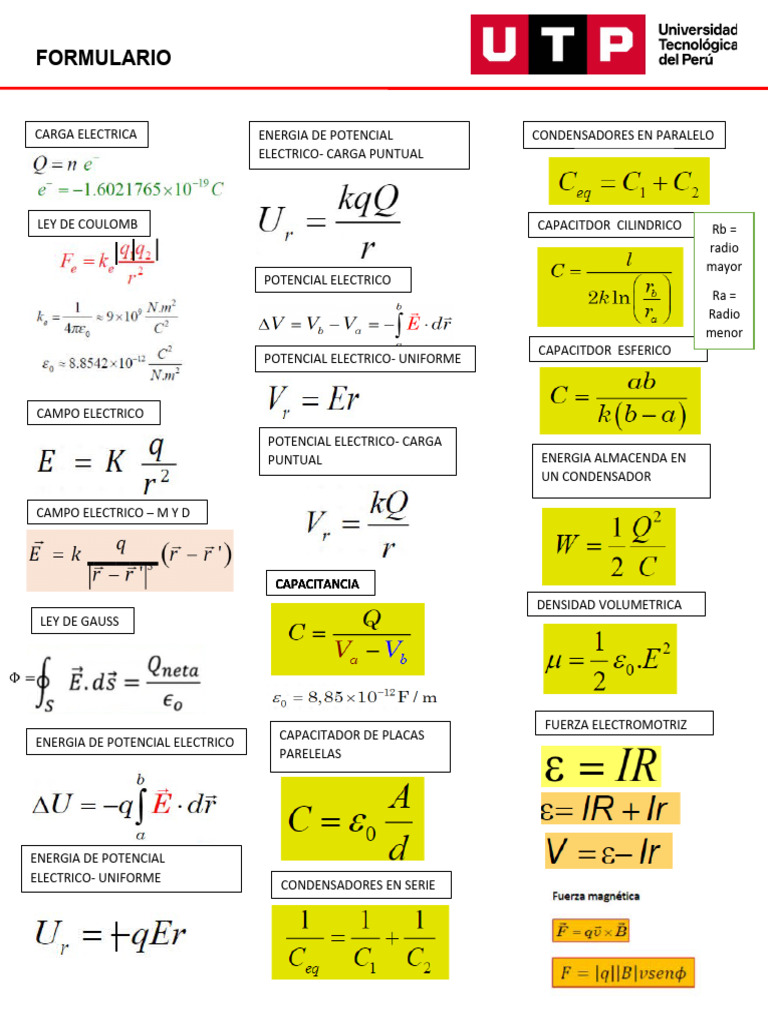 FORMULARIO
UTP
Universidad
Tecnológica
del Perú
CARGA ELECTRICA
Q = n e⁻
e⁻ = −1.6021765×10⁻¹⁹ C
LEY DE COULOMB
Fₑ = kₑ |q₁q₂| / r²
kₑ = 1 / 4πε₀ ≈ 9×10⁹ N.m² / C²
ε₀ ≈ 8.8542×10⁻¹² C² / N.m²
CAMPO ELECTRICO
E = K q / r²
CAMPO ELECTRICO – M Y D
E⃗ = k q / |r⃗ − r⃗'|³ (r⃗ − r⃗')
LEY DE GAUSS
Φ = ∮S E⃗.ds⃗ = Qneta / ϵ₀
ENERGIA DE POTENCIAL ELECTRICO
ΔU = −q ∫ₐᵇ E⃗ · dr⃗
ENERGIA DE POTENCIAL
ELECTRICO- UNIFORME
Uᵣ = +qEr
ENERGIA DE POTENCIAL
ELECTRICO- CARGA PUNTUAL
Uᵣ = kqQ / r
POTENCIAL ELECTRICO
ΔV = V_b − Vₐ = −∫ₐᵇ E⃗ · dr⃗
POTENCIAL ELECTRICO- UNIFORME
Vᵣ = Er
POTENCIAL ELECTRICO- CARGA
PUNTUAL
Vᵣ = kQ / r
CAPACITANCIA
C = Q / (Vₐ − V_b)
ε₀ = 8,85×10⁻¹² F / m
CAPACITADOR DE PLACAS
PARELELAS
C = ε₀ A / d
CONDENSADORES EN SERIE
1 / C_eq = 1 / C₁ + 1 / C₂
CONDENSADORES EN PARALELO
C_eq = C₁ + C₂
CAPACITDOR CILINDRICO
C = l / 2k ln(r_b / rₐ)
Rb =
radio
mayor
Ra =
Radio
menor
CAPACITDOR ESFERICO
C = ab / k(b − a)
ENERGIA ALMACENDA EN
UN CONDENSADOR
W = 1/2 Q² / C
DENSIDAD VOLUMETRICA
μ = 1/2 ε₀.E²
FUERZA ELECTROMOTRIZ
ε = IR
ε = IR + Ir
V = ε − Ir
Fuerza magnética
F⃗ = qv⃗ × B⃗
F = |q||B|vsenϕ